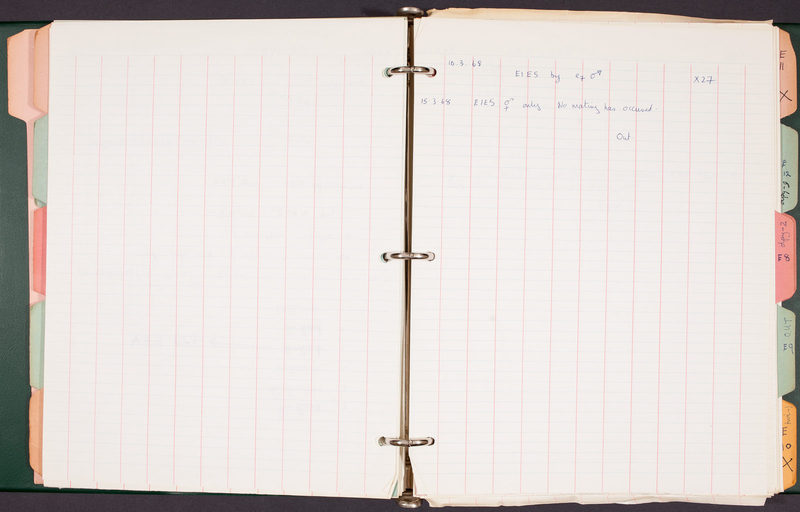 10.3.68
E1ES by e7 ♂ X27
15.3.68 E1ES ⚥ only No mating has occurred.
Out
E 11 X
E 8
OUT E9
E 0 X